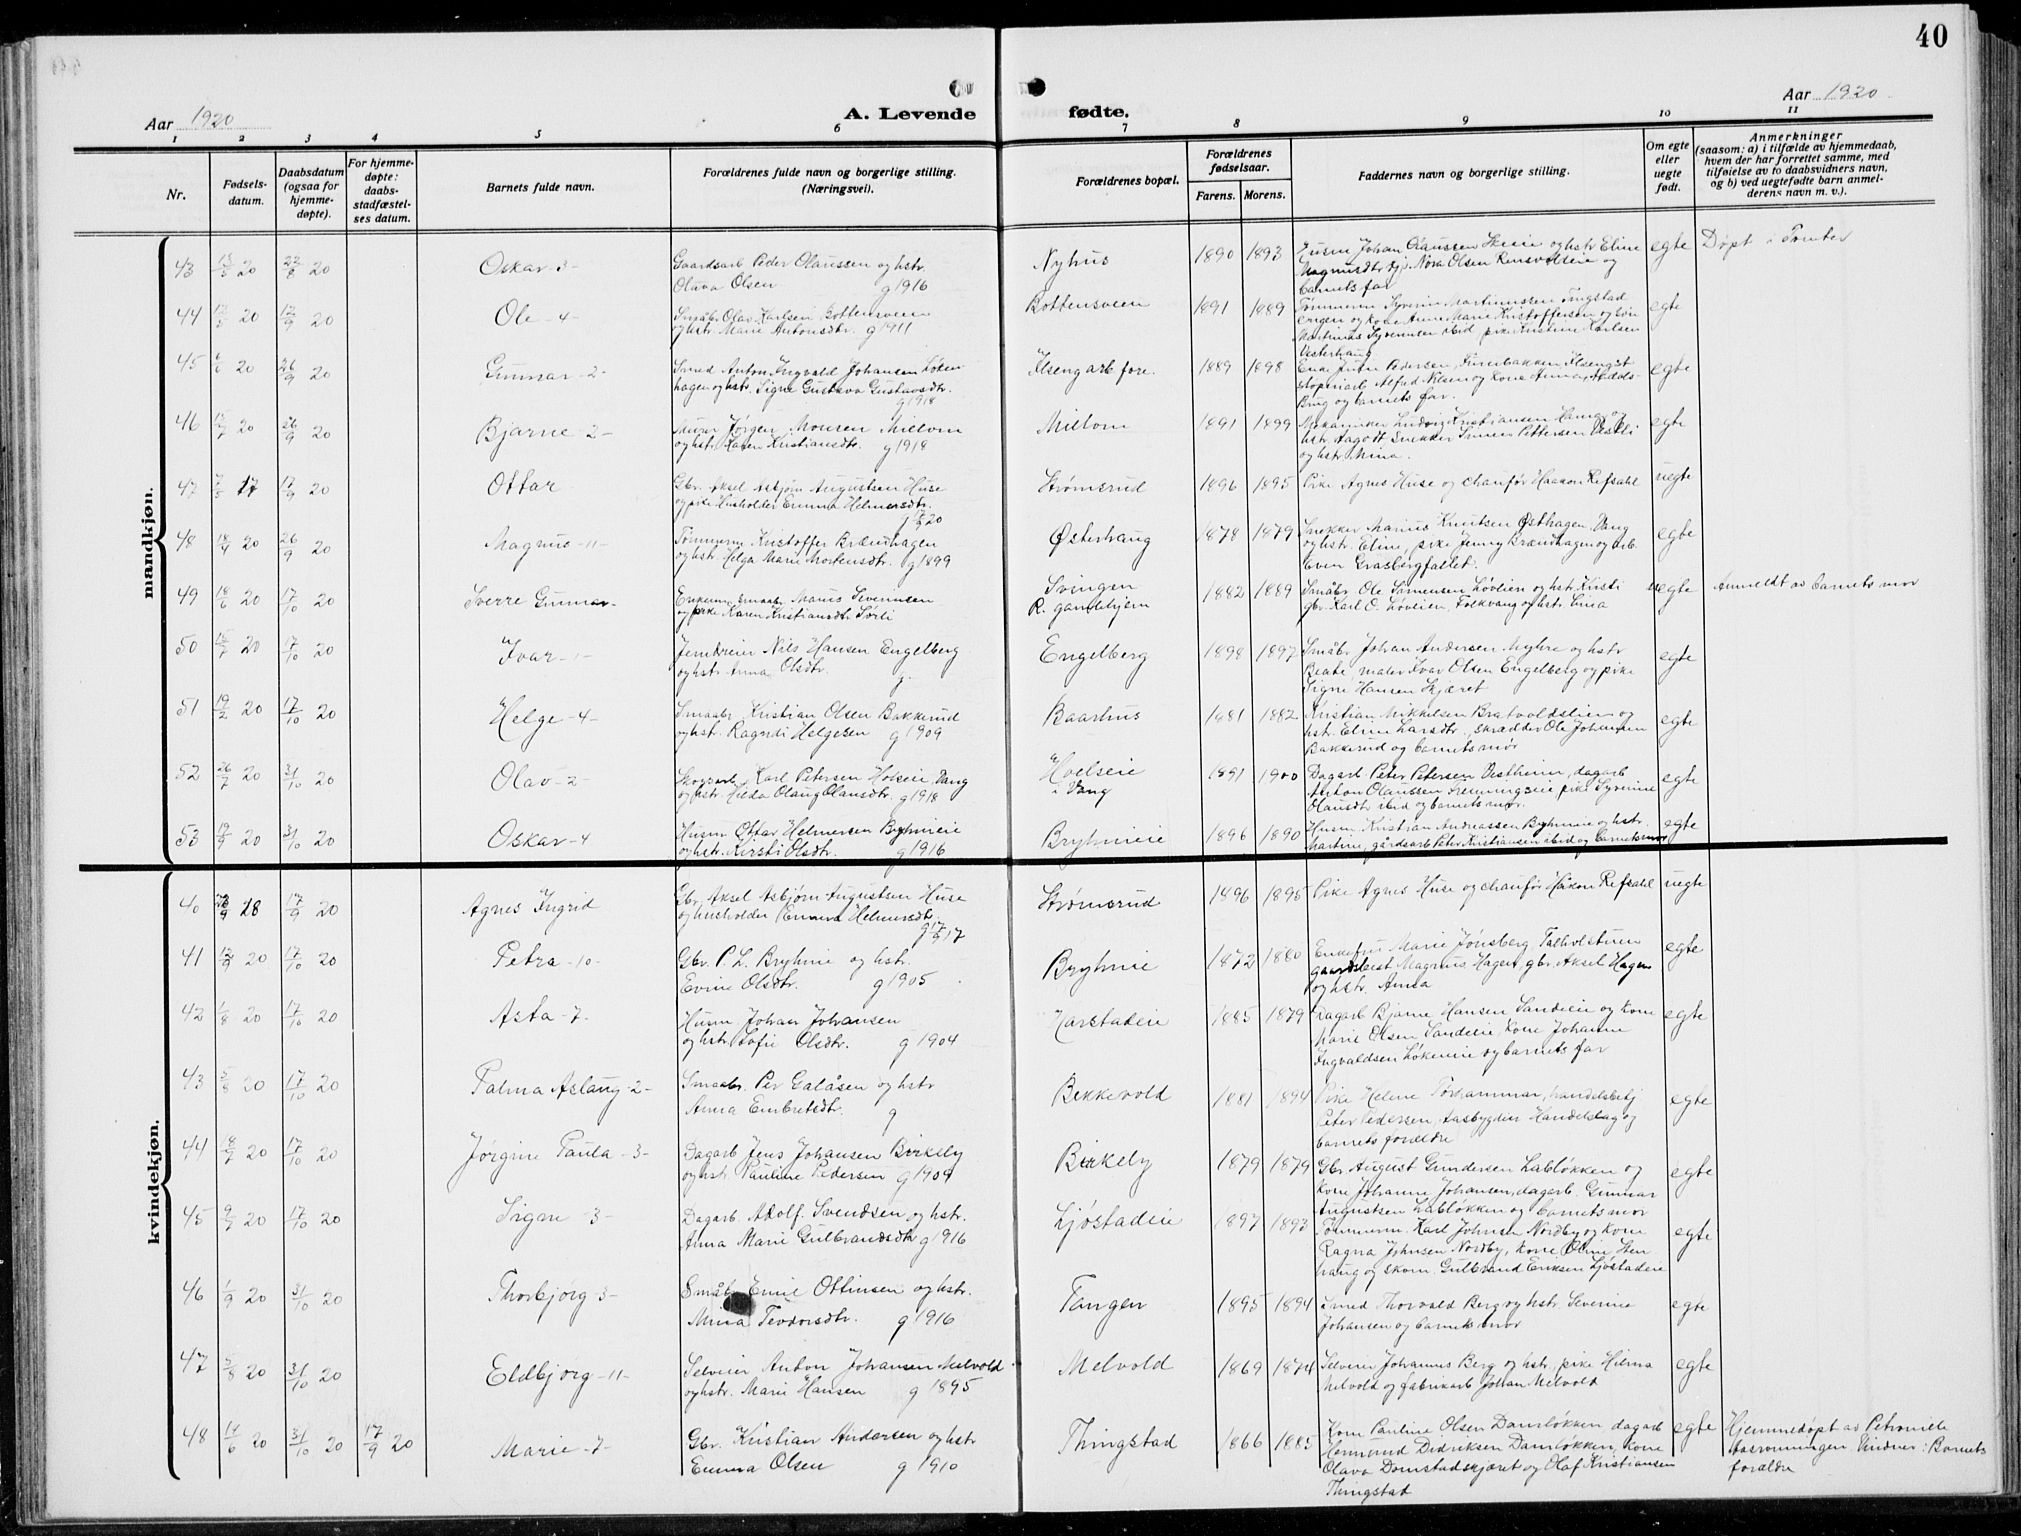 40
Aar 1920
A. Levende fødte.
Aar 1920
1 2 3 4 5 6 7 8 9 10 11
Nr.
Fødsels-
datum.
Daabsdatum
(ogsaa for
hjemme-
døpte).
For hjemme-
døpte:
daabs-
stadfæstel-
ses datum.
Barnets fulde navn.
Forældrenes fulde navn og borgerlige stilling.
(Næringsvei).
Forældrenes bopæl.
Forældrenes
fødselsaar.
Farens. Morens.
Faddernes navn og borgerlige stilling.
Om egte
eller
uegte
født.
Anmerkninger
(saasom: a) i tilfælde av hjemmedaab,
hvem der har forrettet samme, med
tilføielse av to daabsvidners navn,
og b) ved uegtefødte barn anmel-
derens navn m. v.).
mandkjøn.
43 13/5 20 22/8 20 Oskar -3- Gaardsarb Peder Olaussen og hstr. Nyhus 1890 1893 Husm Johan Olaussen Skeie og hstr Eline egte Døpt i Tomter
Olava Olsen g 1916 Olsen Rensvolseie og
barnets far
44 12/5 20 12/9 20 Ole -4- Småbr Olav Karlsen Bottensveen Bottensveen 1891 1889 Tømmerm Syverin Martinussen Tingstad egte
og hstr Marie Antonsdtr. g 1911 engen og kone Anne Marie Kristoffersen og søn
Martinus Syverinsen ibid pike Kristine Karlsen
Vesterhaug
45 6/6 20 26/9 20 Gunnar -2- Smed Anton Ingvald Johansen Løken Ilseng arb fore. 1889 1898 Enke Pedersen, Furubakken Ilseng st egte
hagen og hstr. Signe Gustava Gustavsdtr. Alfred Nilsen og kone Anna,
g 1918 Brug og barnets far.
46 15/7 20 26/9 20 Bjarne -2- Murer Jørgen Monsen Millom Millom 1891 1899 Mekaniker Ludvig Kristiansen Haug og egte
og hstr. Karen Kristiansdtr. g 1918 hstr Aagot Snekker Simen Pettersen Vestli
og hstr Mina.
47 17 17/9 20 Ottar Gbr. Aksel Asbjørn Augustsen Huse Strømsrud 1896 1895 Pike Agnes Huse og chaufør Haakon Refsahl uegte
og pike Husholder Emma Helmersdtr.
20
48 18/4 20 26/9 20 Magnus -11- Tømmerm Kristoffer Brænhagen Østerhaug 1878 1879 Snekker Marius Knutsen Østhagen, Vang egte
og hstr Helga Marie Mortensdtr. g 1899 og hstr. Eline, pike Jenny Brænhagen og arb.
Even Grasbergfallet.
49 18/6 20 17/10 20 Sverre Gunnar- Enkem, smaabr Maurits Severinsen Svingen 1882 1889 Småbr Ole Simensen Løvlien og hstr Kristi uegte Anmeldt av barnets mor
og pike Karen Kristiansdtr Sørli R. gamlehjem gbr. Karl O. Løvlien, Folkvang og hstr. Lina
50 15/7 20 17/10 20 Ivar -1- Jerndreier Nils Hansen Engelberg Engelberg 1898 1897 Småbr Johan Andersen Myhre og hstr egte
og hstr. Anna Olsdtr. g. Beate, maler Ivar Olsen Engelberg og pike
Signe Hansen Skjæret
51 19/2 20 17/10 20 Helge -4- Smaabr. Kristian Olsen Bakkerud Baarhus 1881 1882 Kristian Mikkelsen Bratvoldslien og egte
og hstr. Ragndi Helgesen g 1909 hstr. Eline Larsdtr, skrædder Ole Johansen
Bakkerud og barnets mor
52 26/7 20 31/10 20 Olav -2- Skogsarb Karl Petersen Hoelseie, Vang Hoelseie 1891 1900 Dagarb. Peter Petersen Vestheim, dagarb egte
og hstr. Hilda Olaug Olausdtr. g 1918 i Vang Anton Olaussen pike Syverine
Olausdtr ibid og barnets mor.
53 19/9 20 31/10 20 Oskar -4 Husm Ottar Helmersen Bryhnieie Bryhnieie 1896 1890 Husm. Kristian Andreassen Bryhnieie og hstr. egte
og hstr. Kirsti Olsdtr. g 1916 Martine, gårdsarb Peter Kristiansen ibid og barnets mor
kvindekjøn.
40 28/9 18 17/9 20 Agnes Ingrid Gbr. Aksel Asbjørn Augustsen Huse Strømsrud 1896 1895 Pike Agnes Huse og chaufør Håkon Refsahl uegte
og husholder Emma Helmersdtr.
17
41 12/9 20 17/10 20 Petra -10- Gbr. P. L. Bryhnie og hstr. Bryhnie 1872 1880 Enkefru Marie Jønsberg, egte
Evine Olsdtr. g 1905 gaardsbest Magnus Hagen, gbr. Aksel Hagen
og hstr. Anna
42 1/8 20 17/10 20 Asta -7- Husm Johan Johansen Harstadeie 1885 1879 Dagarb Bjarne Hansen Sandeie og kone egte
og hstr Sofie Olsdtr. g 1904 Marie Olsen Sandeie, kone Johanne
Ingvaldsen Løkenie og barnets far
43 5/8 20 17/10 20 Palma Aslaug -2- Smaabr. Per Galåsen og hstr Bekkevold 1881 1894 Pike Helene Torhammar, handelsbetj egte
Anna Embretsdtr. g Peter Pedersen, Aasbygden Handelslag og
barnets forældre
44 18/7 20 17/10 20 Jørgine Paula -3- Dagarb Jens Johansen Birkely Birkely 1879 1879 Gbr August Gundersen Labløkken og egte
og hstr. Pauline Pedersen g 1909 kone Johanne Johansen, dagarb. Gunnar
Augustsen Labløkken og barnets mor
45 9/7 20 17/10 20 Signe -3- Dagarb. Adolf Svendsen og hstr. Ljøstadeie 1897 1893 Tømmerm. Karl Johnsen Nordby og kone egte
Anna Marie Gulbrandsdtr g 1916 Ragna Johnsen Nordby, kone Oline Sten
haug og skom. Gulbrand Eriksen Ljøstadeie
46 1/9 20 31/10 20 Thorbjørg -3- Småbr Emil Ottinsen og hstr. Tangen 1895 1894 Smed Thorvald Berg og hstr Severine egte
Mina Teodorsdtr. g 1916 Johansen og barnets mor
47 5/8 20 31/10 20 Eldbjørg -11- Selveier Anton Johansen Melvold Melvold 1869 1874 Selveier Johannes Berg og hstr., pike Hilma egte
og hstr. Marie Hansen g 1895 Melvold og fabrikarb Johan Melvold
48 14/6 20 31/10 20 17/9 20 Marie -7- Gbr. Kristian Andersen og hstr Thingstad 1866 1885 Kone Pauline Olsen Damløkken dagarb egte Hjemmedøpt av Petronele
Emma Olsen g 1910 Hermund Didriksen Damløkken, kone Vidner: Barnets
Olava Domstadskjæret og Olaf Kristiansen forældre
Thingstad